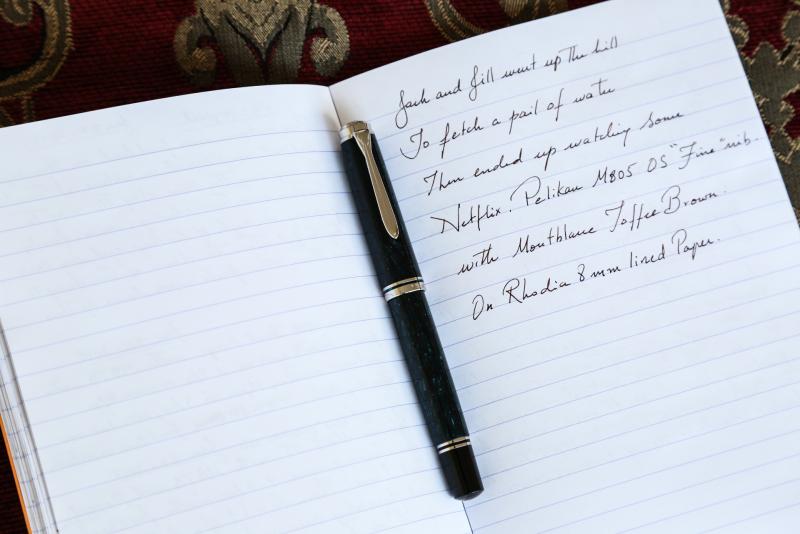 Jack and Jill went up the hill
To fetch a pail of water
Then ended up watching some
Netflix. Pelikan M805 OS "Fine" nib.
with Montblanc Toffee Brown.
On Rhodia 8mm lined Paper.